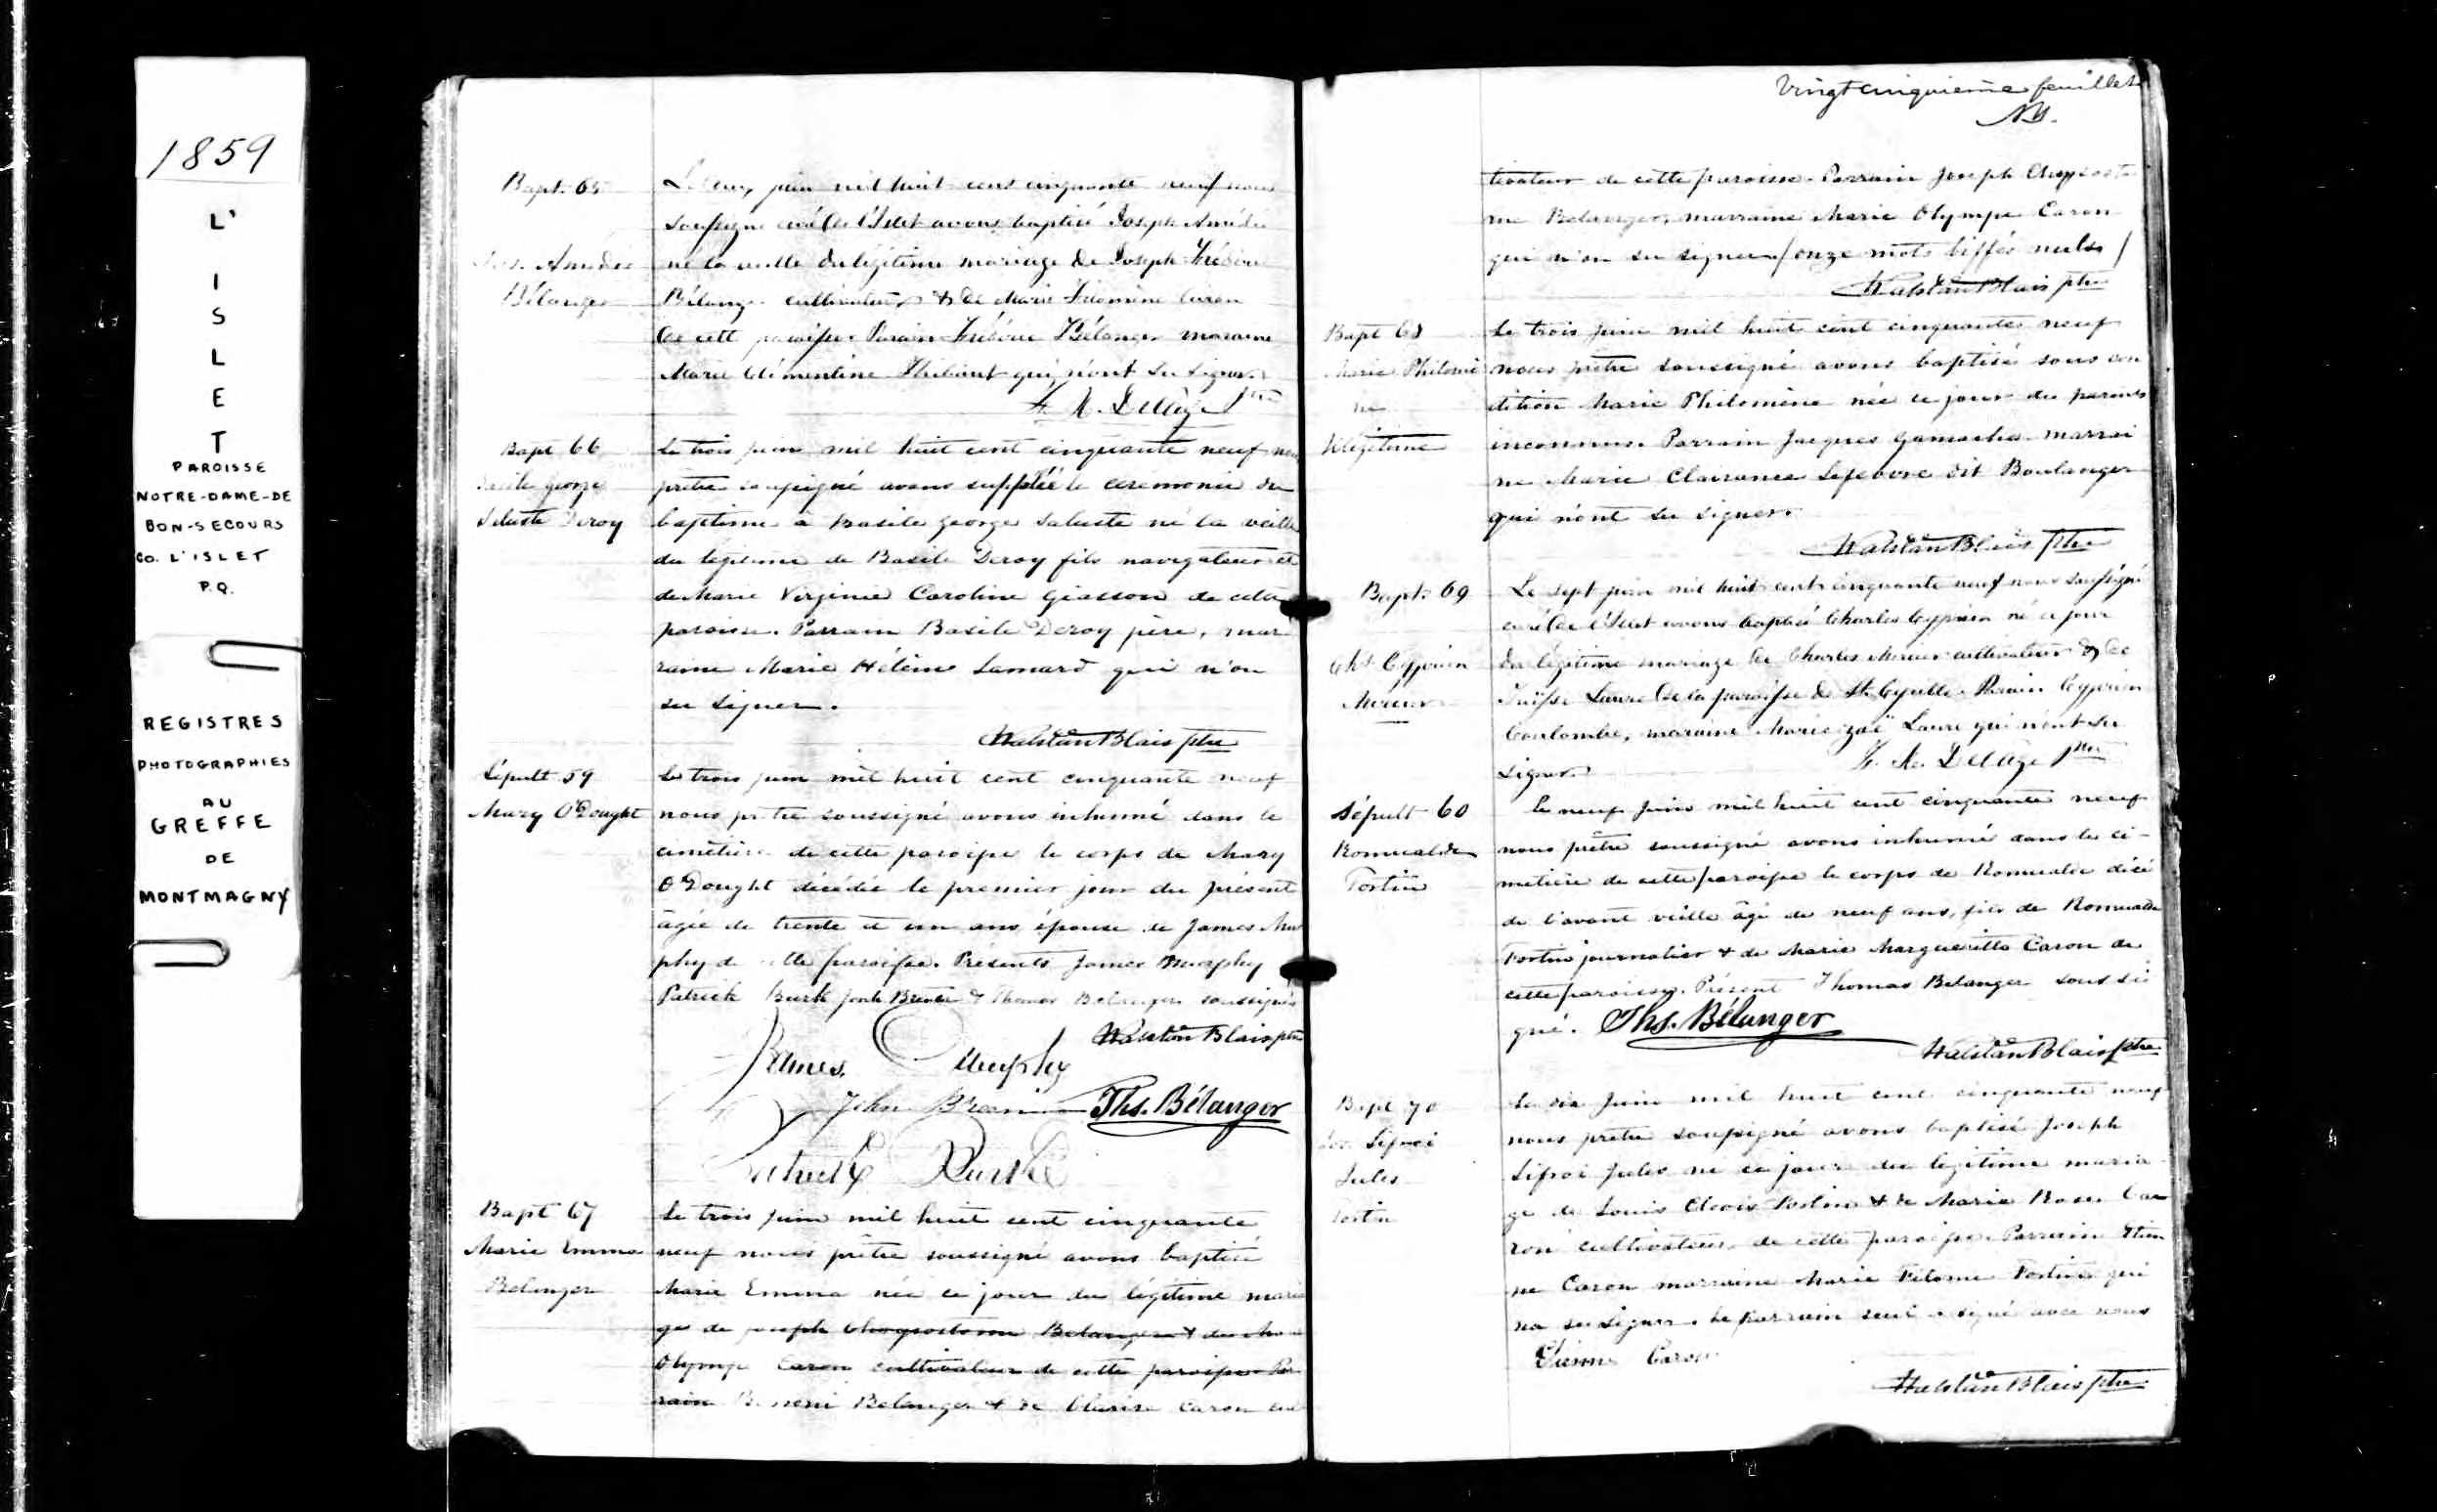 1859
L'
I
S
L
E
T
PAROISSE
NOTRE-DAME-DE
BON-SECOURS
CO. L'ISLET
P.Q.
REGISTRES
PHOTOGRAPHIES
AU
GREFFE
DE
MONTMAGNY
Bapt. 65
Jos. Amédée
Bélanger
Le deux juin mil huit cent cinquante neuf nous
soussigné curé de l'Islet avons baptisé Joseph Amédée
né la veille du légitime mariage de Joseph Frédéric
Bélanger cultivateur & de Marie Filomène Caron
de cette paroisse. Parain Frédéric Bélanger maraine
Marie Clémentine Thibaut qui n'ont su signer.
F. X. Delâge Ptre
Bapt 66
Basile George
Saluste Deroy
Le trois juin mil huit cent cinquante neuf nous
prêtre soussigné avons supplée le ceremonie du
baptême à Basile George Saluste né la veille
du legitime de Basile Deroy fils navigateur et
de Marie Virginie Caroline Giasson de cette
paroisse. Parrain Basile Deroy père, mar
raine Marie Hélène Lamard qui n'on
su signer.
Walstan Blais ptre
Sépult 59
Mary O'Dought
Le trois juin mil huit cent cinquante neuf
nous prêtre soussigné avons inhumé dans le
cimétière de cette paroisse le corps de Mary
O'Dought décédée le premier jour du présent
âgée de trente et un ans épouse de James Mur
phy de cette paroisse. Présents James Murphy
Patrick Burk John Breen & Thomas Belanger soussignés
Walstan Blais ptre
James Murphy
John Breen Ths. Bélanger
Patrick Burke
Bapt 67
Marie Emma
Belanger
Le trois juin mil huit cent cinquante
neuf nous prêtre soussigné avons baptisé
Marie Emma née ce jour du légitime maria
ge de joseph Chrysostome Belanger & de Marie
Olympe Caron cultivateur de cette paroisse Par
rain Benoni Belanger & de Clarise Caron cul
Vingt cinquième feuillet
tivateur de cette paroisse. Parrain Joseph Chrysosto
me Belanger, marraine Marie Olympe Caron
qui n'on su signer / onze mots biffés nuls /
Walstan Blais ptre
Bapt 68
Marie Philomè
ne
Illégitime
Le trois juin mil huit cent cinquante neuf
nous prêtre soussigné avons baptisé sous con
dition Marie Philomène née ce jour du parents
inconnus. Parrain Jacques Gamache marrai
ne Marie Clairance Lefebvre dit Boulanger
qui n'ont su signer.
Walstan Blais Ptre
Bapt. 69
Chs. Cyprien
Mercier
Le sept juin mil huit cent cinquante neuf nous soussigné
curé de l'Islet avons baptisé Charles Cyprien né ce jour
du légitime mariage de Charles Mercier cultivateur & de
Laure de la paroisse de St. Cyrille. Parain Cyprien
Coulombe, maraine Marie Zoé Laure qui n'ont su
signer. F. X. Delâge Ptre
Sépult 60
Romualde
Fortin
Le neuf juin mil huit cent cinquante neuf
nous prêtre soussigné avons inhumé dans le ci-
metière de cette paroisse le corps de Romualde décé
dé l'avant veille âgé de neuf ans, fils de Romualde
Fortin journalier & de Marie Margueritte Caron de
cette paroisse. Présent Thomas Belanger sous si
gné. Ths. Bélanger
Walstan Blais ptre
Bapt 70
Jos. Lifroi
Jules
Fortin
Le dix juin mil huit cent cinquante neuf
nous prêtre soussigné avons baptisé Joseph
Lifroi Jules né ce jour du legitime maria
ge de Louis Clovis Fortin & de Marie Rose Ca
ron cultivateur de cette paroisse. Parrain Etien
ne Caron marraine Marie Filomé Fortin qui
na su signer. Le parrain seul a signé avec nous
Etienne Caron
Walstan Blais ptre